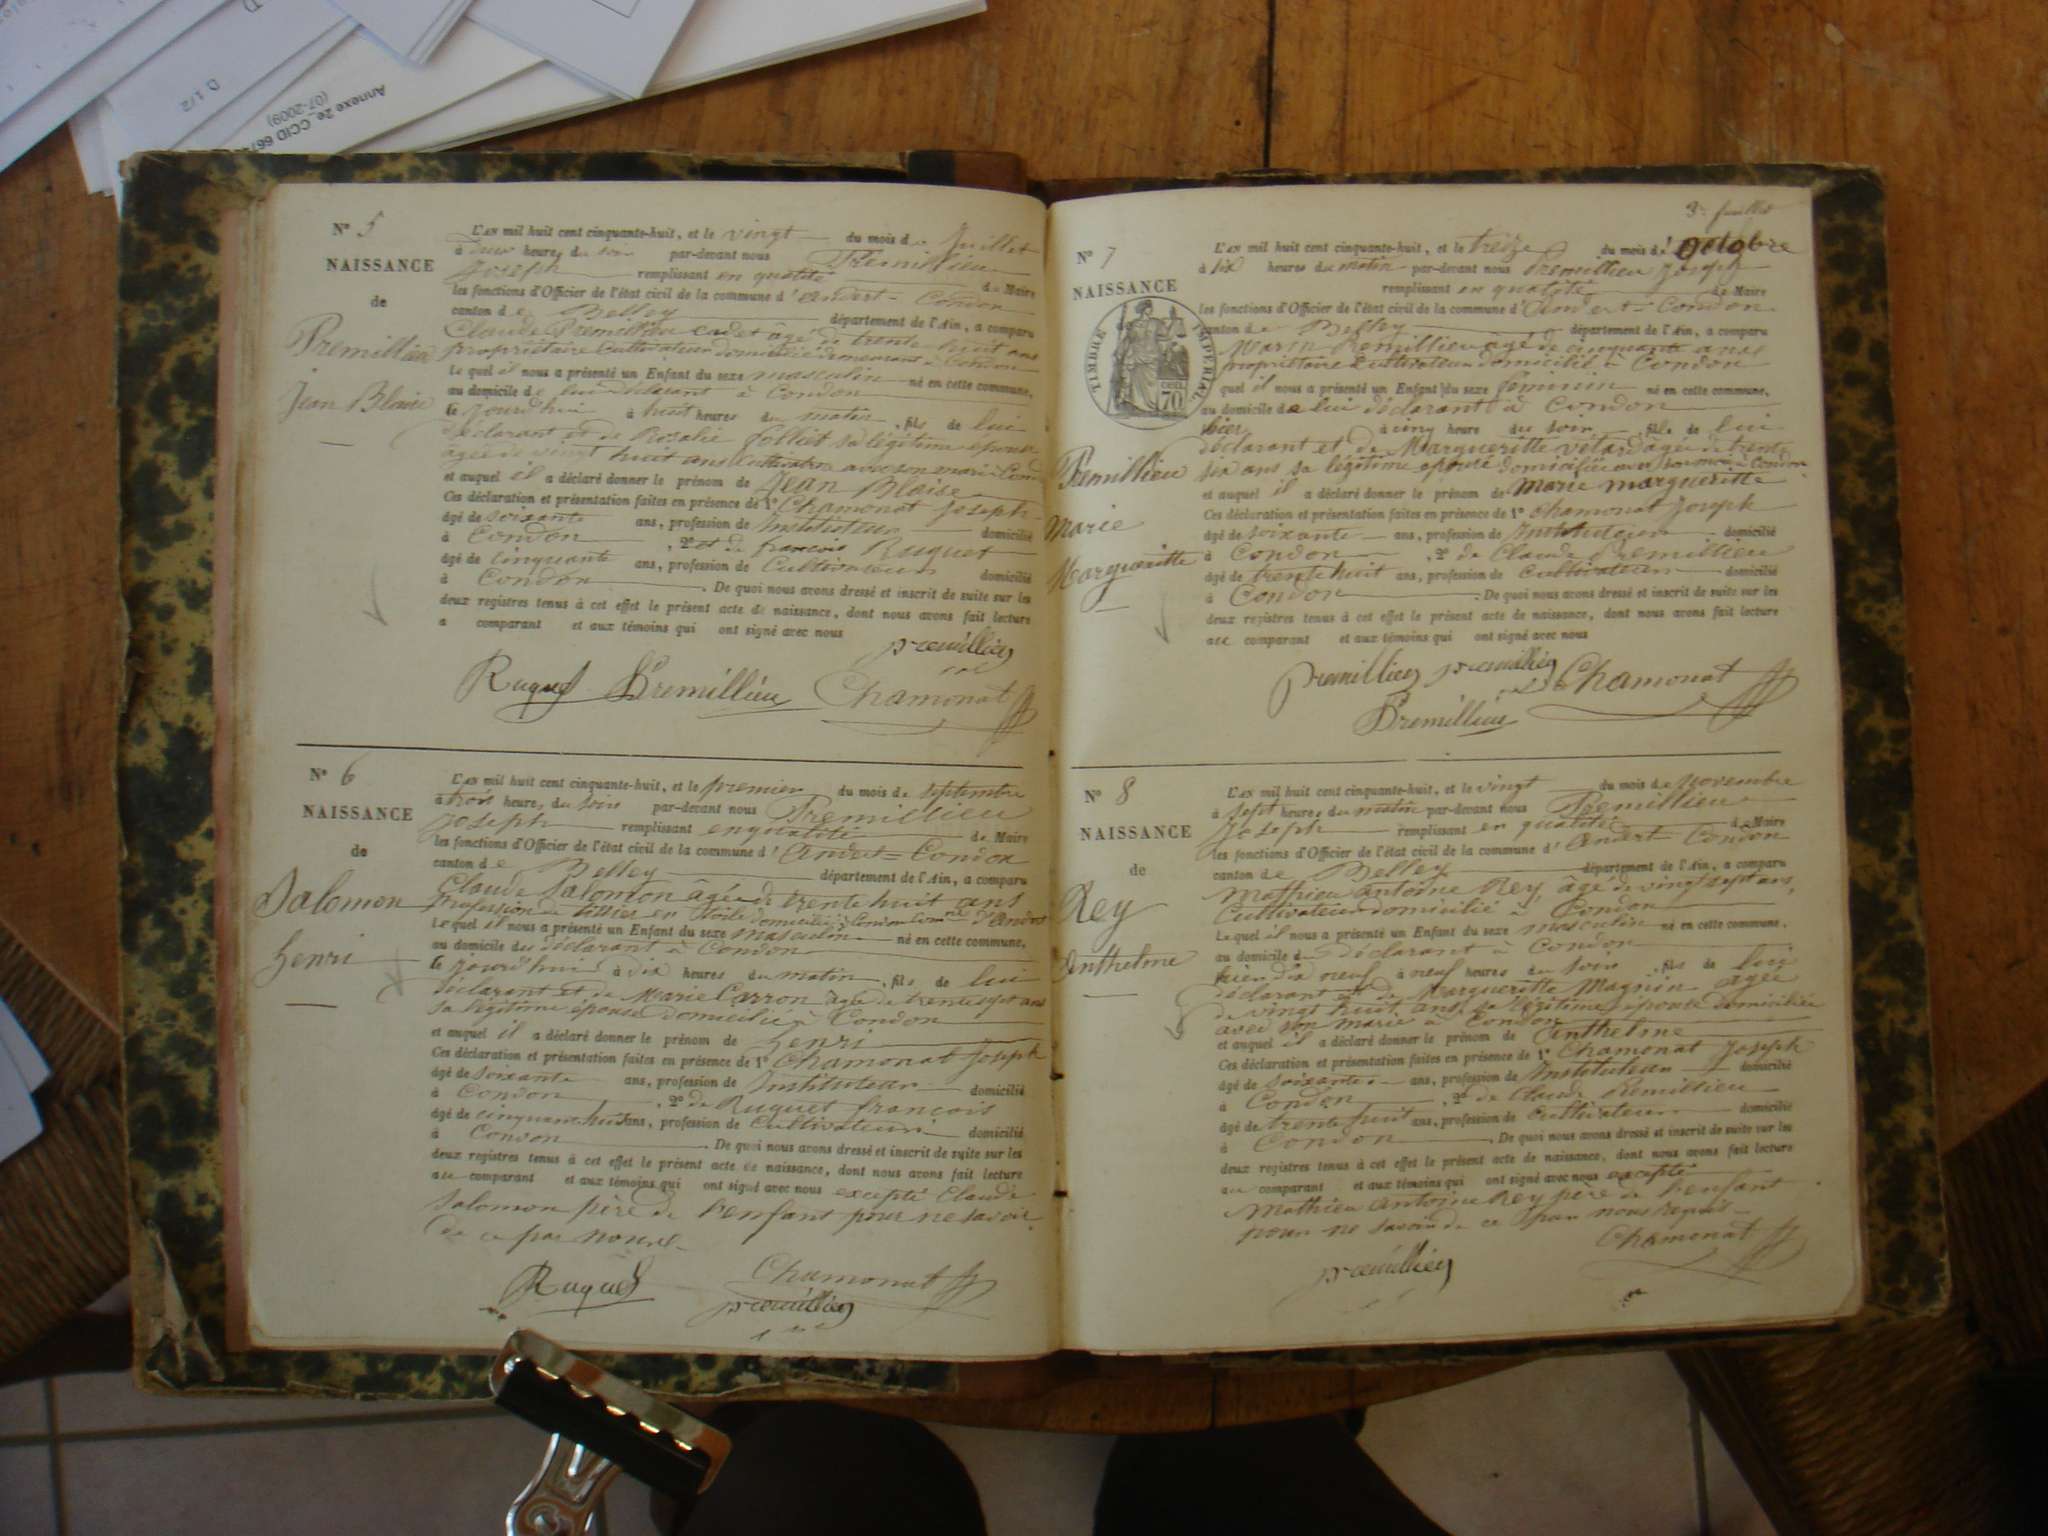 D 1/2
Annexe 2e_CCID 6674
(07-2009)
N° 5
NAISSANCE
de
Premillieu
Jean Blaise
L'AN mil huit cent cinquante-huit, et le vingt du mois de Juillet
à heures du soir par-devant nous Premillieu
Joseph remplissant en qualité de Maire
les fonctions d'Officier de l'état civil de la commune d'Andert-Condon
canton de Belley département de l'Ain, a comparu
Claude Premillieu cadet âgé de trente huit ans
propriétaire cultivateur domicilié demeurant à Condon
Lequel il nous a présenté un Enfant du sexe masculin né en cette commune,
au domicile de lui déclarant à Condon
le jourd'hui à huit heures du matin, fils de lui
déclarant et de Rosalie Jolliet sa légitime épouse
âgée de vingt huit ans cultivatrice avec son mari à Condon
et auquel il a déclaré donner le prénom de Jean Blaise
Ces déclaration et présentation faites en présence de 1° Chamonat Joseph
âgé de soixante ans, profession de Instituteur domicilié
à Condon, 2° et de françois Ruquet
âgé de cinquante ans, profession de Cultivateur domicilié
à Condon. De quoi nous avons dressé et inscrit de suite sur les
deux registres tenus à cet effet le présent acte de naissance, dont nous avons fait lecture
a comparant et aux témoins qui ont signé avec nous
premillieu
Ruquet Premillieu Chamonat
N° 6
NAISSANCE
de
Salomon
henri
L'AN mil huit cent cinquante-huit, et le premier du mois de septembre
à trois heures du soir par-devant nous Premillieu
Joseph remplissant en qualité de Maire
les fonctions d'Officier de l'état civil de la commune d'Andert-Condon
canton de Belley département de l'Ain, a comparu
Claude Salomon âgé de trente huit ans
profession de tissier en toile domicilié à Condon Comne d'Andert
Lequel il nous a présenté un Enfant du sexe masculin né en cette commune,
au domicile du déclarant à Condon
le jourd'hui à dix heures du matin, fils de lui
déclarant et de Marie Carron âgée de trente sept ans
sa légitime épouse domicilié à Condon
et auquel il a déclaré donner le prénom de henri
Ces déclaration et présentation faites en présence de 1° Chamonat Joseph
âgé de soixante ans, profession de Instituteur domicilié
à Condon, 2° de Ruquet françois
âgé de cinquante huit ans, profession de Cultivateur domicilié
à Condon. De quoi nous avons dressé et inscrit de suite sur les
deux registres tenus à cet effet le présent acte de naissance, dont nous avons fait lecture
au comparant et aux témoins qui ont signé avec nous excepté Claude
Salomon père de l'enfant pour ne savoir
de ce par nous
Ruquet Chamonat
premillieu
3e feuillet
N° 7
NAISSANCE
TIMBRE IMPERIAL
70 cen.
Premillieu
Marie
Margueritte
L'AN mil huit cent cinquante-huit, et le treize du mois d'Octobre
à six heures du matin par-devant nous Premillieu Joseph
remplissant en qualité de Maire
les fonctions d'Officier de l'état civil de la commune d'Andert-Condon
canton de Belley département de l'Ain, a comparu
Marin Premillieu âgé de cinquante ans
propriétaire Cultivateur domicilié à Condon
quel il nous a présenté un Enfant du sexe féminin né en cette commune,
au domicile de lui déclarant à Condon
hier à cinq heure du soir, fille de lui
déclarant et de Margueritte Vétard âgée de trente
six ans sa légitime épouse domiciliée avec son mari à Condon
et auquel il a déclaré donner le prénom de Marie margueritte
Ces déclaration et présentation faites en présence de 1° Chamonat Joseph
âgé de soixante ans, profession de Instituteur domicilié
à Condon, 2° de Claude Premillieu
âgé de trente huit ans, profession de Cultivateur domicilié
à Condon. De quoi nous avons dressé et inscrit de suite sur les
deux registres tenus à cet effet le présent acte de naissance, dont nous avons fait lecture
au comparant et aux témoins qui ont signé avec nous
premillieu premillieu Chamonat
Premillieu
N° 8
NAISSANCE
de
Rey
Anthelme
L'AN mil huit cent cinquante-huit, et le vingt du mois de novembre
à sept heures du matin par-devant nous Premillieu
Joseph remplissant en qualité de Maire
les fonctions d'Officier de l'état civil de la commune d'Andert-Condon
canton de Belley département de l'Ain, a comparu
Mathieu Antoine Rey, âgé de vingt sept ans,
Cultivateur domicilié à Condon
Lequel il nous a présenté un Enfant du sexe masculin né en cette commune,
au domicile du déclarant à Condon
hier dix neuf à neuf heures du soir, fils de lui
déclarant et de Margueritte Magnin âgée
de vingt huit ans sa légitime épouse domiciliée
avec son marie à Condon
et auquel il a déclaré donner le prénom de Anthelme
Ces déclaration et présentation faites en présence de 1° Chamonat Joseph
âgé de soixante ans, profession de Instituteur domicilié
à Condon, 2° de Claude Premillieu
âgé de trente huit ans, profession de Cultivateur domicilié
à Condon. De quoi nous avons dressé et inscrit de suite sur les
deux registres tenus à cet effet le présent acte de naissance, dont nous avons fait lecture
au comparant et aux témoins qui ont signé avec nous excepté
Mathieu Antoine Rey père de l'enfant
pour ne savoir de ce par nous requis
Chamonat
premillieu